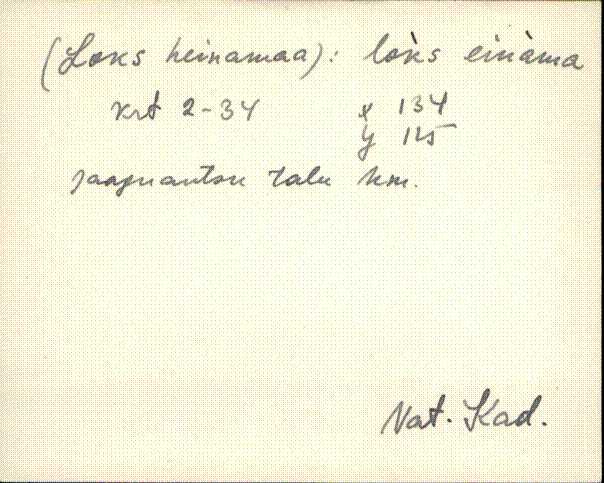 (Loks heinamaa): loks einama
krt 2-34 x 134
y 125
jaapuantsu talu hm.
Nat. Kad.